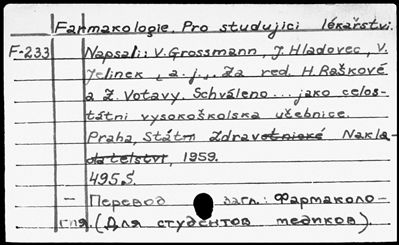 Farmakologie. Pro studující lékařství.
F-233 Napsali: V. Grossmann, J. Hladovec, V.
Jelinek, a. j., Za red. H. Raškové
a Z. Votavy. Schváleno... jako celos-
tátní vysokoškolska učebnice.
Praha, Státn Zdravetnické Nakla-
datelství, 1959.
495 S.
— Перевод загл.: Фармаколо-
гия. (Для студентов медиков).